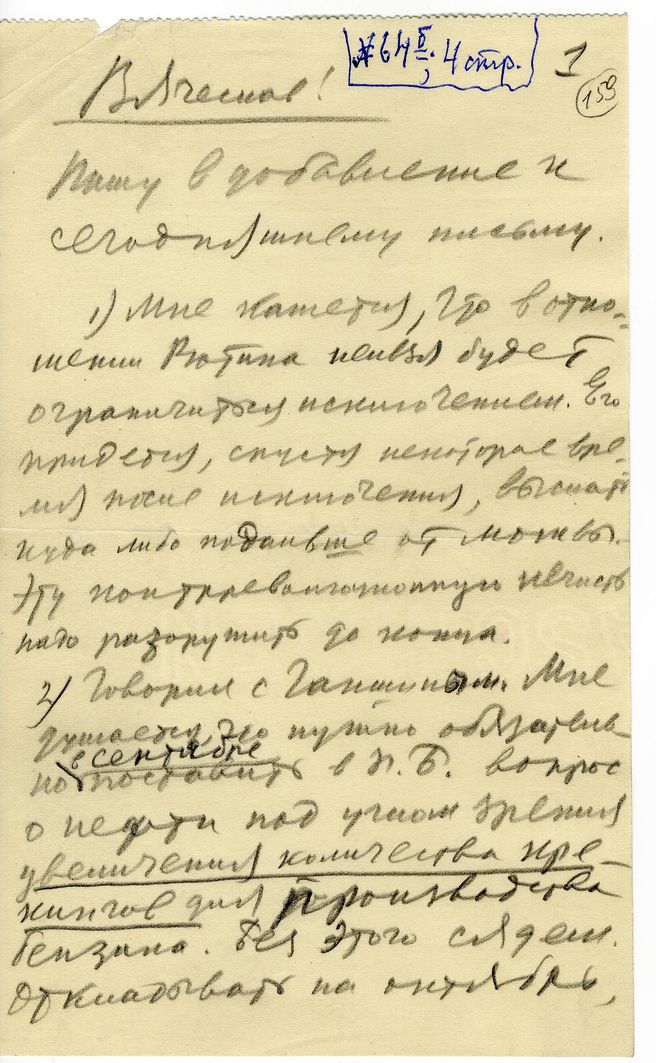 №64б, 4 стр.
1
159
Вячеслав!
Пишу в добавление к
сегодняшнему письму.
1) Мне кажется, что в отно-
шении Рютина нельзя будет
ограничиться исключением. Его
придется, спустя некоторое вре-
мя после исключения, выслать
куда либо подальше от Москвы.
Эту контрреволюционную нечисть
надо разоружить до конца.
2) Говорил с Ганшиным. Мне
думается, что нужно обязатель-
в сентябре
но поставить в П.Б. вопрос
о нефти под углом зрения
увеличения количества кре-
кингов для производства
бензина. Без этого сядем.
Откладывать на октябрь,